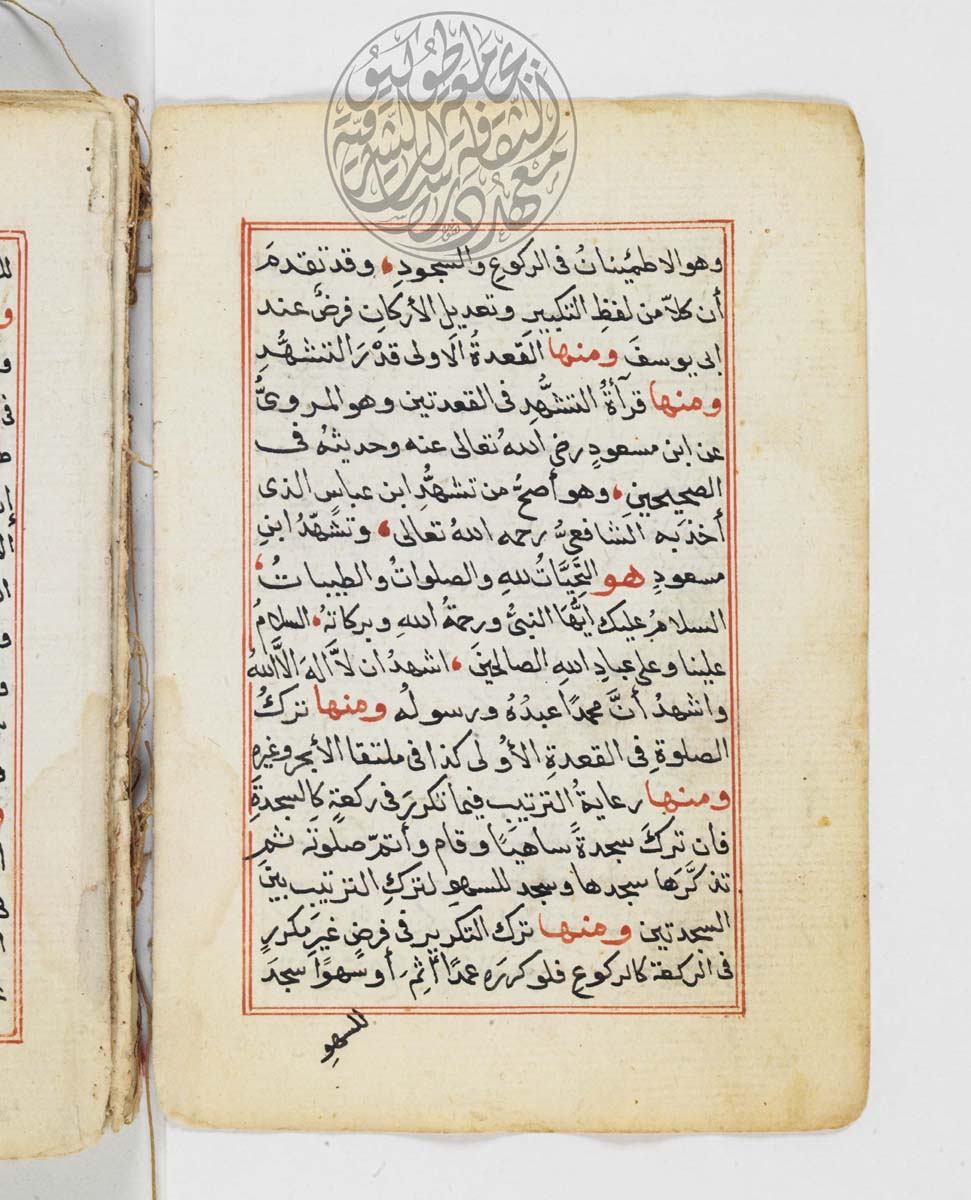 وهو الاطمئنانُ فى الركوعِ والسجودِ، وقد تقدمَ
أن كلاً من لفظِ التكبيرِ وتعديلِ الأركانِ فرضٌ عند
ابى يوسفَ ومنها القعدةُ الاولى قدْرَ التشهُّدِ
ومنها قرآءةُ التشهُّدِ فى القعدتين وهو المروىُّ
عن ابن مسعودٍ رضى اللهُ تعالى عنه وحديثهُ فى
الصحيحينِ، وهو أصحُّ من تشهُّدِ ابن عباسٍ الذى
أخذ به الشافعىُّ رحمه اللهُ تعالى، وتشهّدُ ابنِ
مسعودٍ هو التحيَّاتُ للهِ والصلواتُ والطيباتُ،
السلامُ عليك ايُّهَا النبىُّ ورحمةُ اللهِ وبركاتهُ، السلامُ
علينا وعلى عبادِ اللهِ الصالحينَ، اشهدُ ان لآَّ الهَ الاَّ اللهُ
واشهدُ أنَّ محمدًا عبدُهُ ورسولُه ومنها تركُ
الصلوةِ فى القعدةِ الأولى كذا فى ملتقا الأبحر وغيرهِ
ومنها رعايةُ الترتيبِ فيما تكررَ فى ركعةٍ كالسجدةِ
فان تركَ سجدةً ساهيًا وقام وأتمّ صلوتَه ثم
تذكَّرَها سجدها وسجد للسهوِ لتركِ الترتيبِ بين
السجدتين ومنها ترك التكرير فى فرضٍ غيرِ مكررٍ
فى الركعة كالركوعِ فلو كررَه عمدًا أثِمَ، أو سهوًا سجدَ
للسهوِ